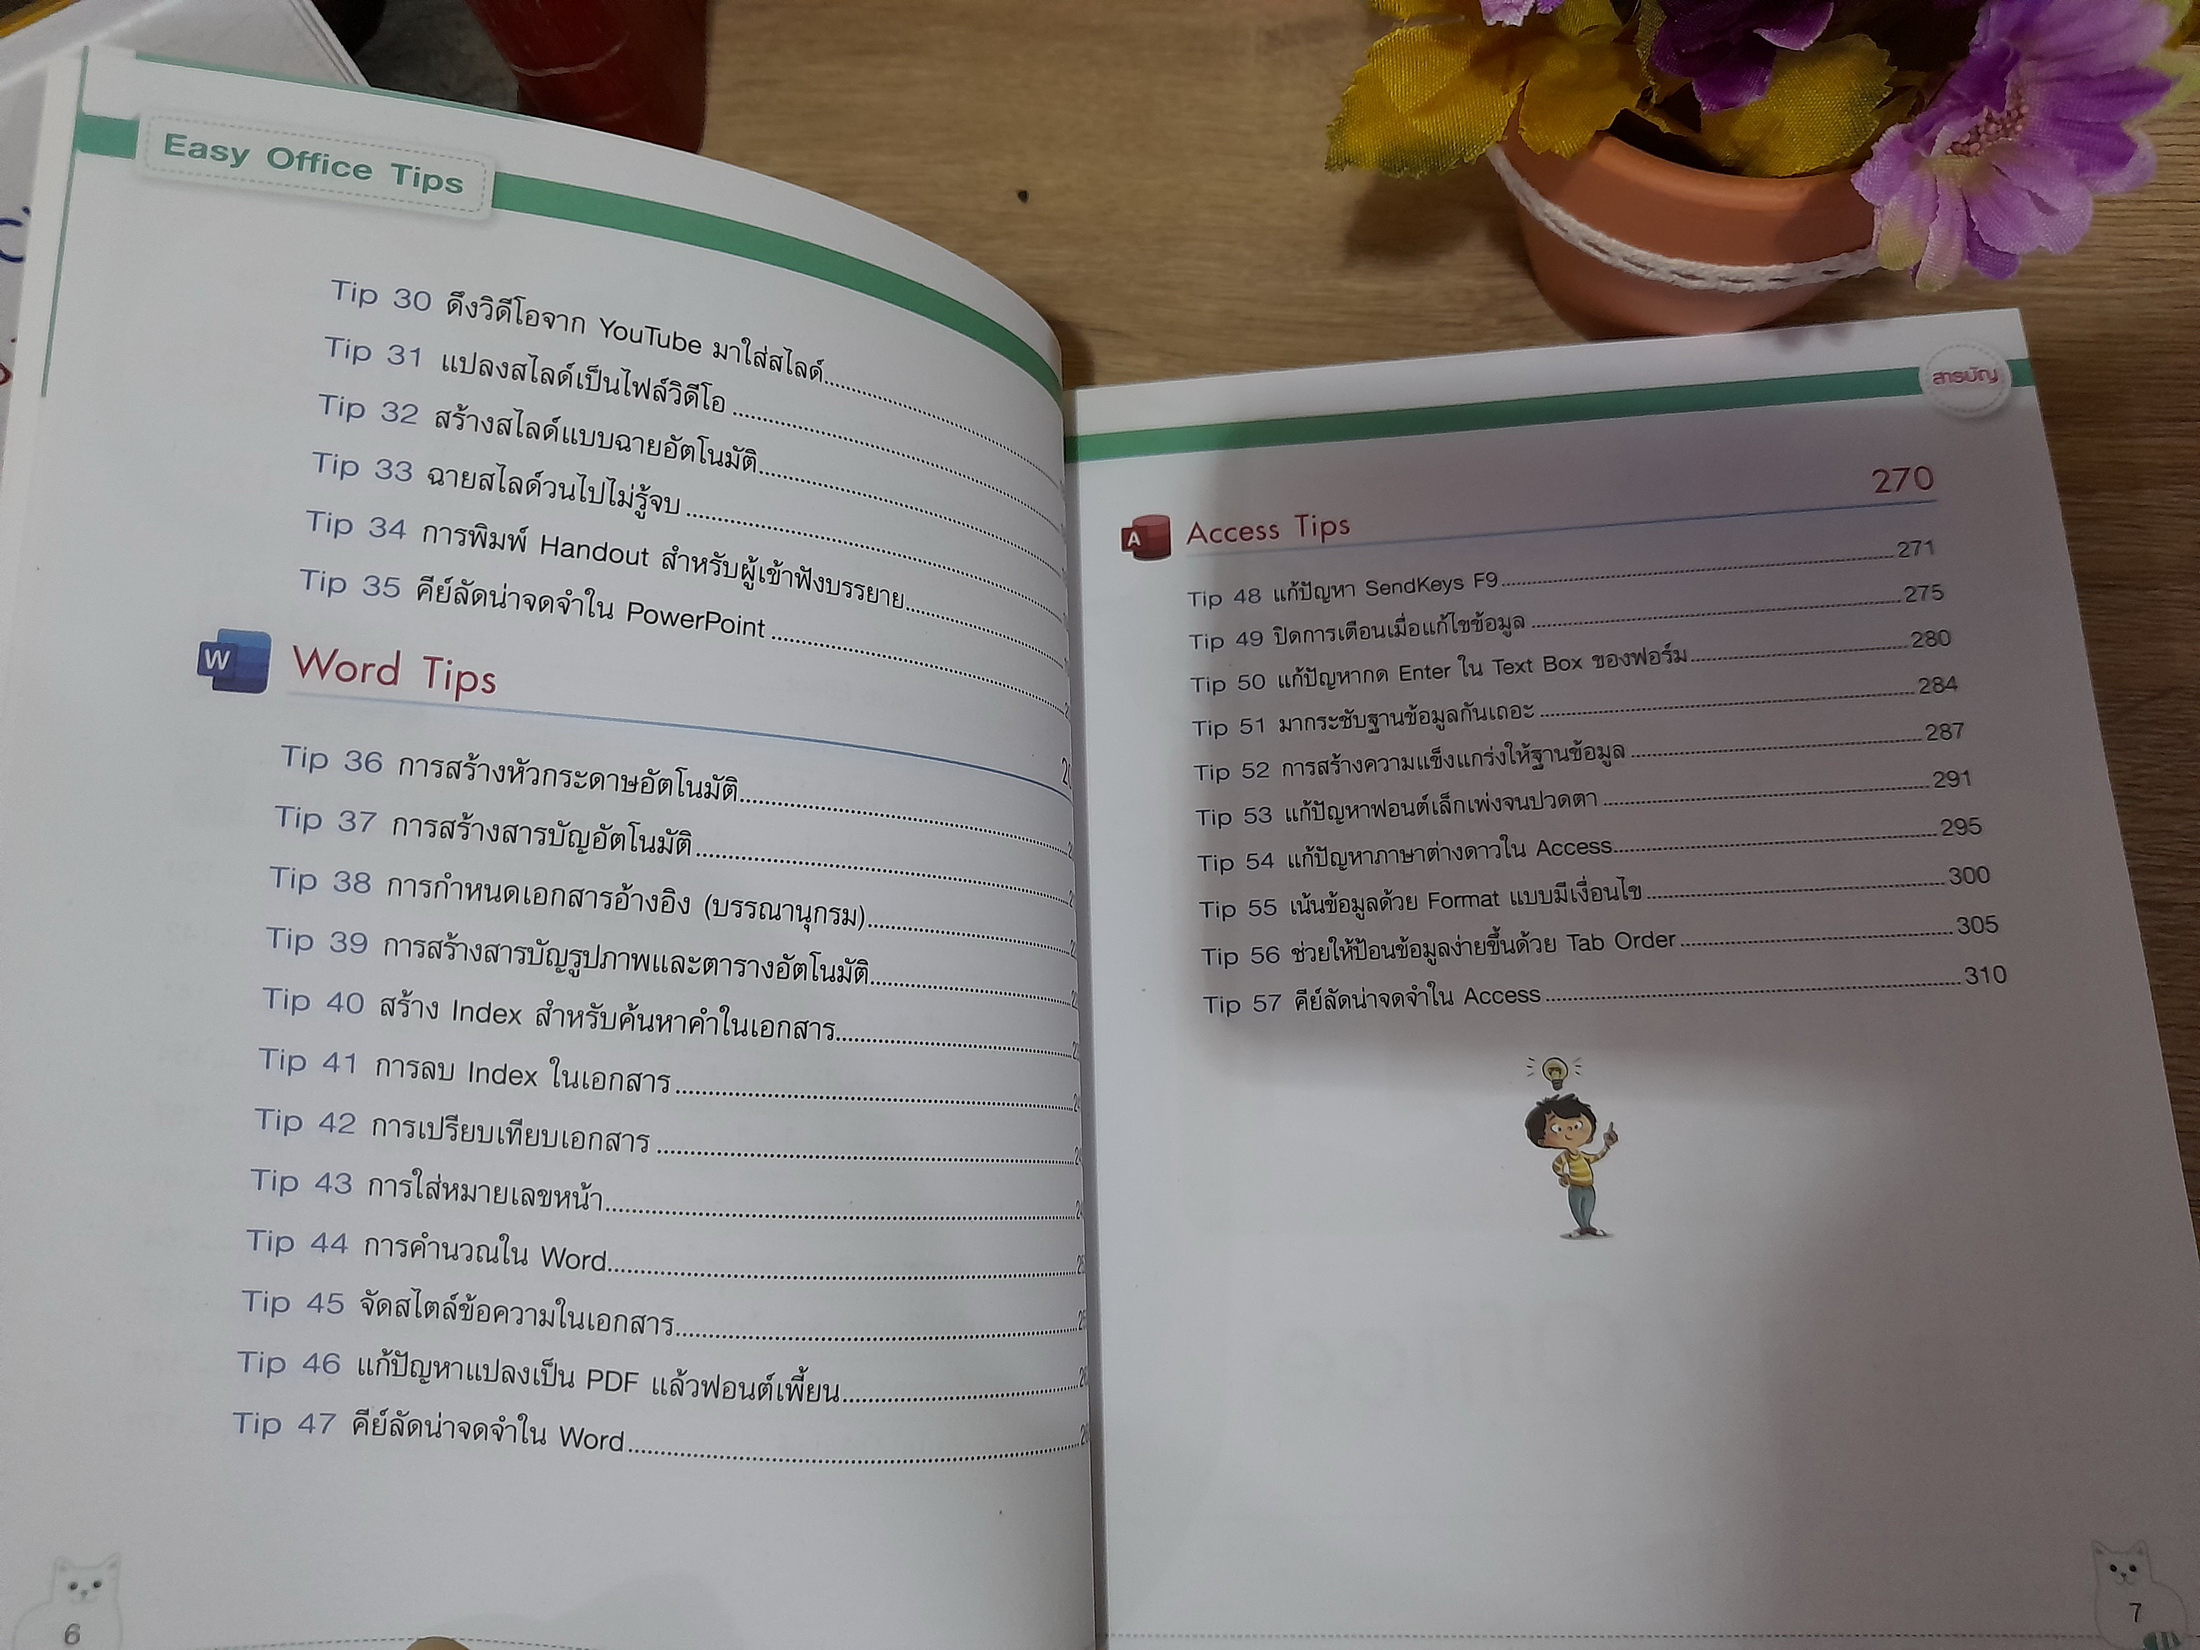 Easy Office Tips
Tip 30 ดึงวิดีโอจาก YouTube มาใส่สไลด์
Tip 31 แปลงสไลด์เป็นไฟล์วิดีโอ
Tip 32 สร้างสไลด์แบบฉายอัตโนมัติ
Tip 33 ฉายสไลด์วนไปไม่รู้จบ
Tip 34 การพิมพ์ Handout สำหรับผู้เข้าฟังบรรยาย
Tip 35 คีย์ลัดน่าจดจำใน PowerPoint
W Word Tips
Tip 36 การสร้างหัวกระดาษอัตโนมัติ
Tip 37 การสร้างสารบัญอัตโนมัติ
Tip 38 การกำหนดเอกสารอ้างอิง (บรรณานุกรม)
Tip 39 การสร้างสารบัญรูปภาพและตารางอัตโนมัติ
Tip 40 สร้าง Index สำหรับค้นหาคำในเอกสาร
Tip 41 การลบ Index ในเอกสาร
Tip 42 การเปรียบเทียบเอกสาร
Tip 43 การใส่หมายเลขหน้า
Tip 44 การคำนวณใน Word
Tip 45 จัดสไตล์ข้อความในเอกสาร
Tip 46 แก้ปัญหาแปลงเป็น PDF แล้วฟอนต์เพี้ยน
Tip 47 คีย์ลัดน่าจดจำใน Word
6
สารบัญ
A Access Tips 270
Tip 48 แก้ปัญหา SendKeys F9 271
Tip 49 ปิดการเตือนเมื่อแก้ไขข้อมูล 275
Tip 50 แก้ปัญหากด Enter ใน Text Box ของฟอร์ม 280
Tip 51 มากระชับฐานข้อมูลกันเถอะ 284
Tip 52 การสร้างความแข็งแกร่งให้ฐานข้อมูล 287
Tip 53 แก้ปัญหาฟอนต์เล็กเพ่งจนปวดตา 291
Tip 54 แก้ปัญหาภาษาต่างดาวใน Access 295
Tip 55 เน้นข้อมูลด้วย Format แบบมีเงื่อนไข 300
Tip 56 ช่วยให้ป้อนข้อมูลง่ายขึ้นด้วย Tab Order 305
Tip 57 คีย์ลัดน่าจดจำใน Access 310
7